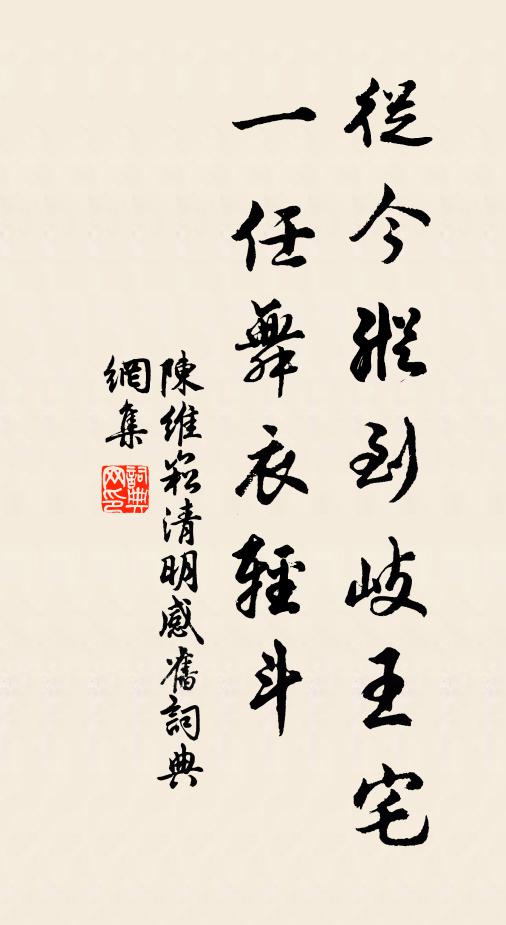 從今縱到岐王宅
一任舞衣輕斗
陳維崧清明感舊詞典
網集
詞典
网印